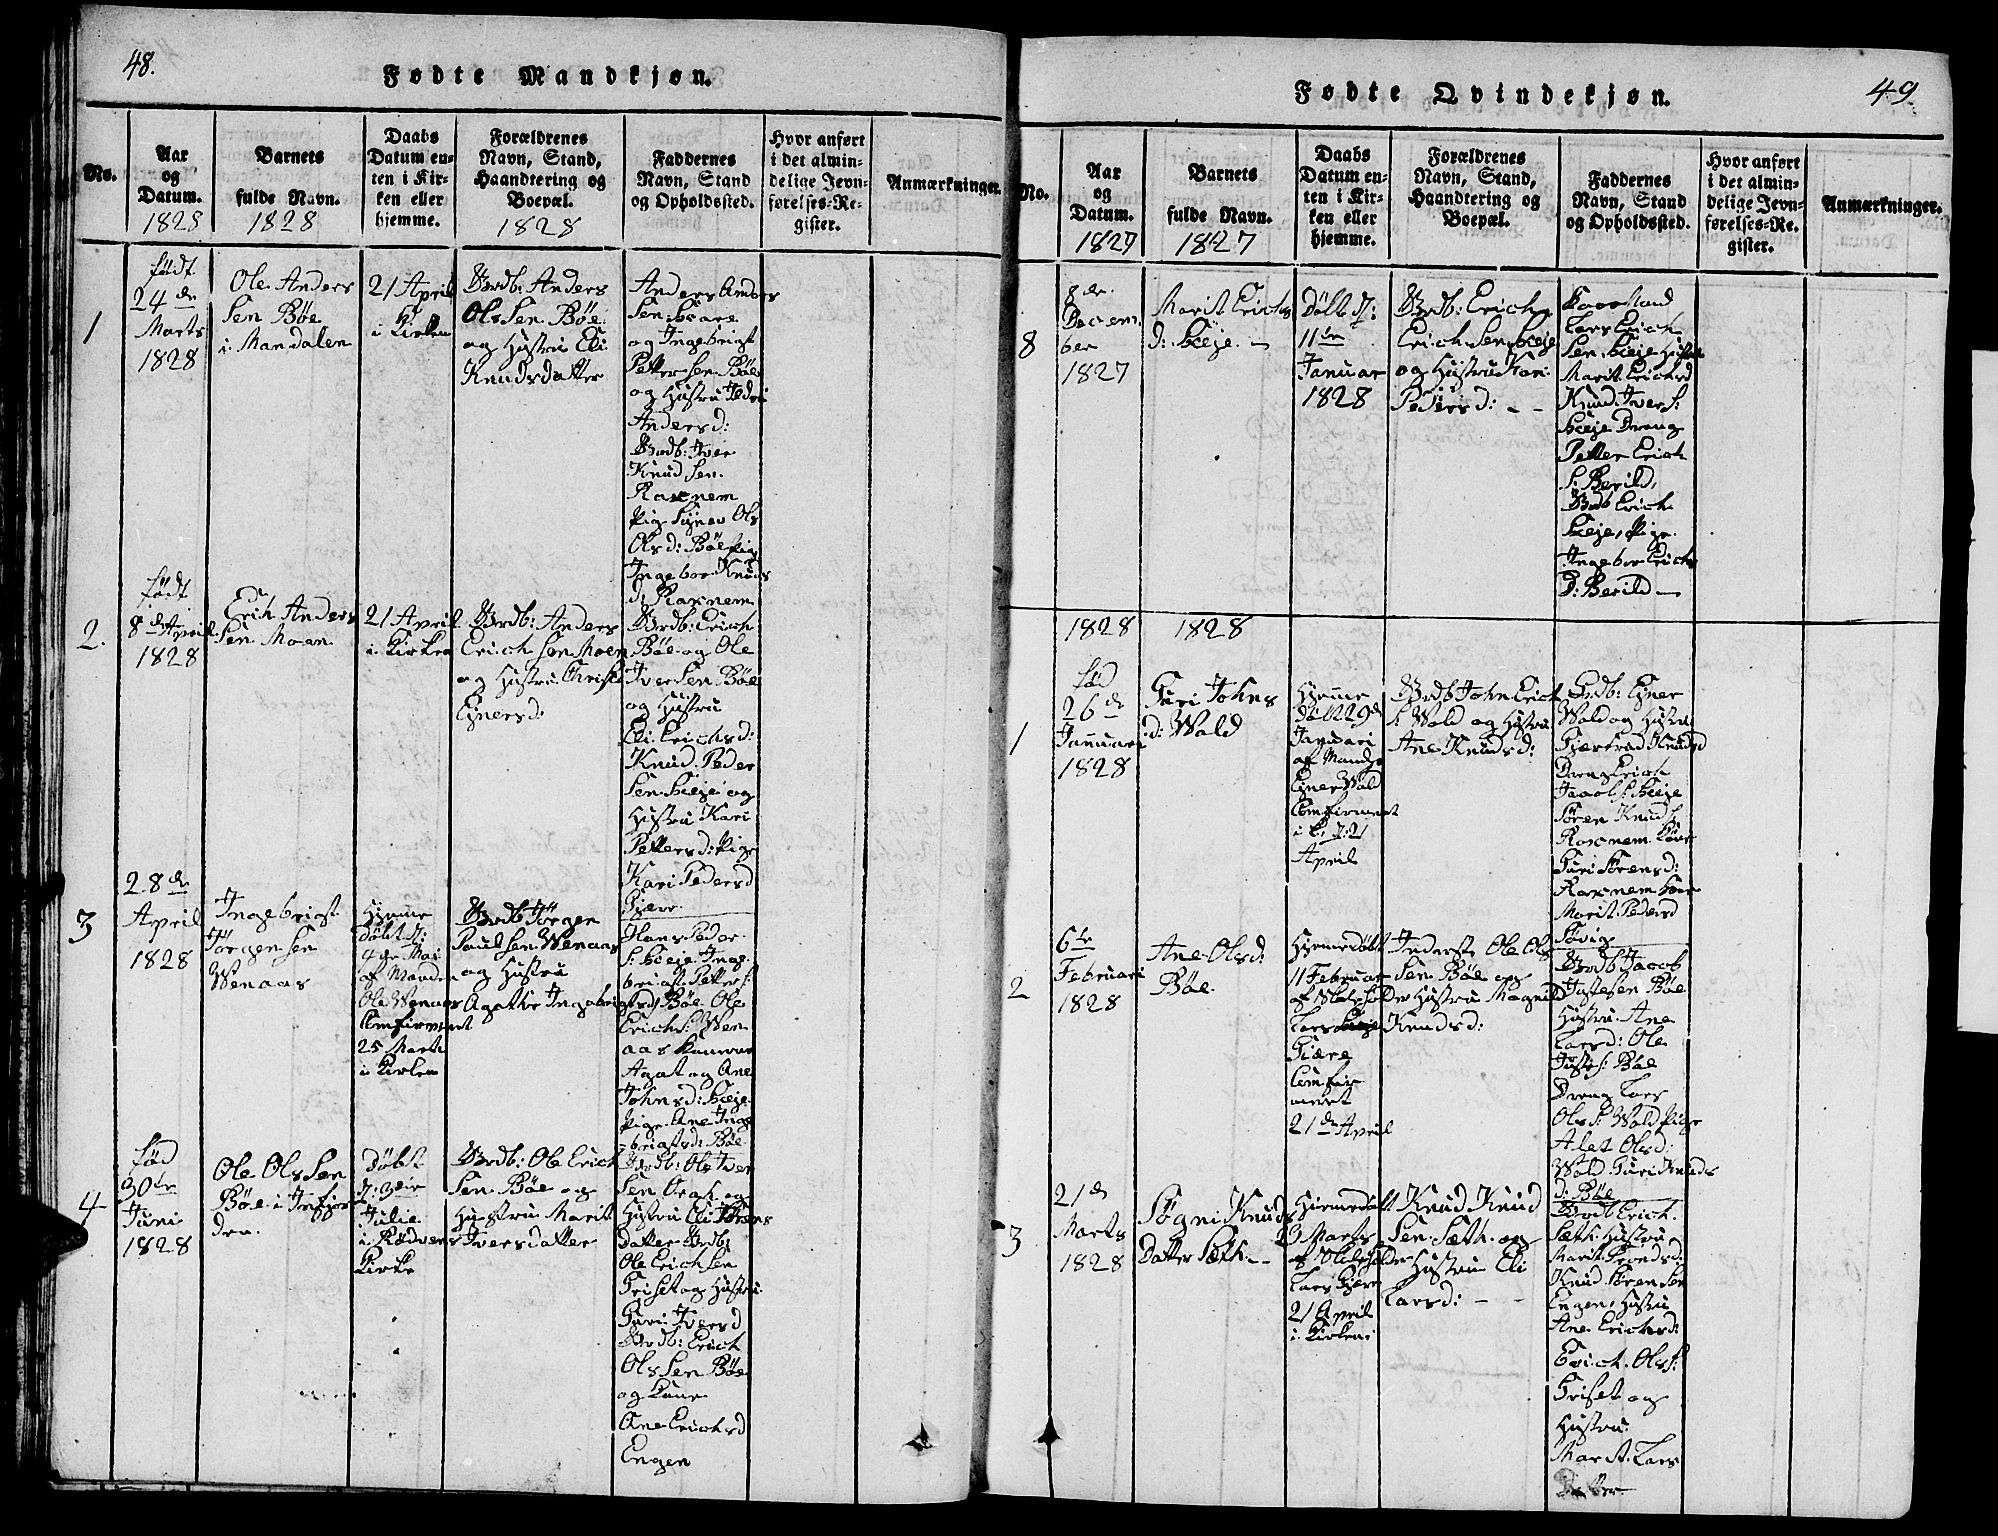 48.
Fødte Mandkjøn.
No.
Aar
og
Datum.
1828
Barnets
fulde Navn.
1828
Daabs
Datum en-
ten i Kir-
ken eller
hjemme.
Forældrenes
Navn, Stand,
Haandtering og
Boepæl.
1828
Faddernes
Navn, Stand
og Opholdssted.
Hvor anført
i det almin-
delige Jevn-
førelses-Re-
gister.
Anmærkninger.
1
født
24 de
Marts
1828
Ole Anders
Sen Böe
i Mandalen
21 April
i Kirken
Brdb: Anders
Ols Sen Böe
og Hustru Eli
Knudsdatter
Anders
Sen
og Ingebrigt
Petter Sen Böe
og Hustru
Anders d:
Brdb: Iver
Knud Sen
Raxnem
Pig Ols
Ols d: Böe Pig
Ingebor Knuds
d: Raxnem
2.
født
8 de April
1828
Erich Anders
Sen Moen
21 April
i Kirken
Brdb: Anders
Erich Sen Moen
og Hustru Christi
Ejners d:
Brdb: Erich
Böe og Ole
Iver Sen Böe
og Hustru
Eli Erichs d:
Knud Peder
Sen Skeje og
Hustru Kari
Petters d: Pige
Kari Peders d
Gjære
3
28 de
April
1828
Ingebrigt
Jørgen Sen
Wenaas
Hjemme
døbt d:
4 de Mai
af Manden
Ole Wenaas
Comfirmert
25 Marts
i Kirken
Brdb Jørgen
Poul Sen Wenaas
og Hustru
Agathe Ingebrigts d
Hans Peder
S: Skeje Inge
brigt Petter S:
Böe Ole
Erich S: Wen
aas
Agat og Ane
Johns d: Skeje
Pige Ane Inge
brigts d: Böe
4
fød
30te
Juni
1828
Ole Ols Sen
Böe i Indfjor
den
Døbt
d: 3die
Julie
i Rødvens
Kirke
Brdb: Ole Erich
Sen Böe og
Hustru Marit
Iversdatter
Brdb: Ole Iver
Sen og
Hustru Eli
datter Brdb:
Ole Erich Sen
Griset og Hustru
Guri Ivers d
Brdb: Erich
Ols Sen Böe
og Kone
Ane Erichs d
Engen
49.
Fødte Qvindekjøn.
No.
Aar
og
Datum.
1827
Barnets
fulde Navn.
1827
Daabs
Datum en-
ten i Kir-
ken eller
hjemme.
Forældrenes
Navn, Stand,
Haandtering og
Boepæl.
Faddernes
Navn, Stand
og Opholdssted.
Hvor anført
i det almin-
delige Jevn-
førelses-Re-
gister.
Anmærkninger.
8
8 de
Decem
ber
1827
Marit Erichs
d: Skeje
Døbt d:
11te
Januar
1828
Brdb: Erich
Erich Sen Skeje
og Hustru Kari
Peders d: - -
Lars Erich
Sen Skeje Hustru
Marit Erichs d
Knud Iver S:
Skeje Dreng
Petter Erich
S: Berild,
Brdb Erich
Skeje, Pige
Ingebor Erichs
D: Berild
1828
1828
1
fød
26 de
Januari
1828
Guri Johns
d: Wold
Hjemme
døbt 29 d
Januari
af Mand
Ejner Wold
Comfirmert
i K. d: 21
April
Brdb John Erich
S: Wold og Hustru
Ane Knuds d:
Brdb: Ejner
Wold og Hustru
Gjertrud Knuds d
Dreng Erich
Jacob S: Skeje
Søren Knud S
Raxnem Kone
Guri Sørens d:
Raxnem
Marit Peders d
Søvig
2
6te
Februari
1828
Ane Ols d:
Böe
Hjemmedøbt
11 Februar
af
Lars Skeje
Gjære
Comfir
meret
21 de April
Inderste Ole Ols
Sen Böe og
Hustru Magnild
Knuds d:
Brdb Jacob
Sen Böe
Hustru Ane
Lars d: Ole
S: Böe
Dreng Lars
Ols S: Wold Pige
Alet Ols d:
Wold Guri Knuds
d: Böe
3
21 d
Marts
1828
Søgni Knuds
Datter Sæth - -
Hjemmedøbt
Marts
af
Lars Gjære
21 April
i Kirken
Knud Knud
Sen Sæth og
Hustru Eli
Lars d: - -
Brdb Erich
Sæth Hustru
Marit Tronds d:
Knud Søren Sen
Engen, Hustru
Ane Erichs d:
Erich Ols S:
Griset og
Hustru
Marit Lars
Datter